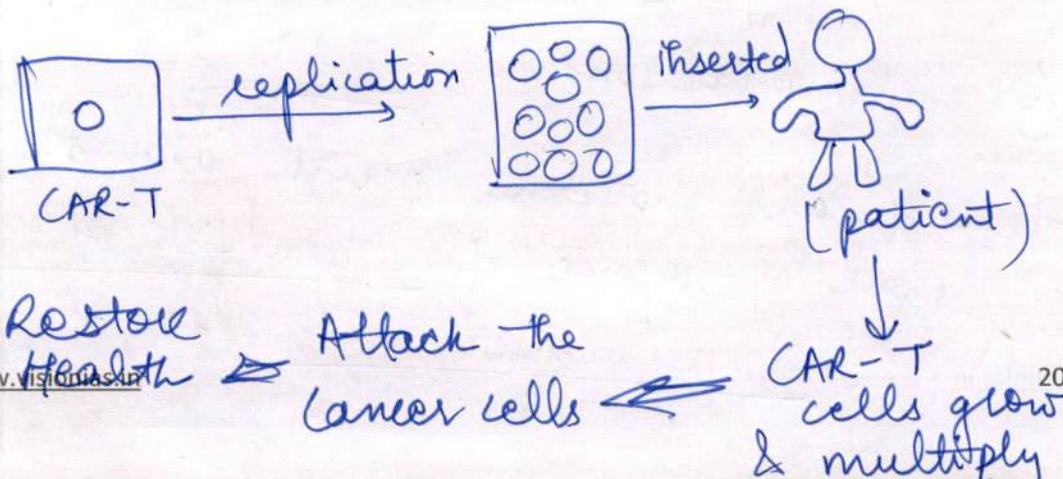 replication
inserted
CAR-T
(patient)
CAR-T
cells grow
& multiply
Attack the
cancer cells
Restore
Health
v.visionias.in
20